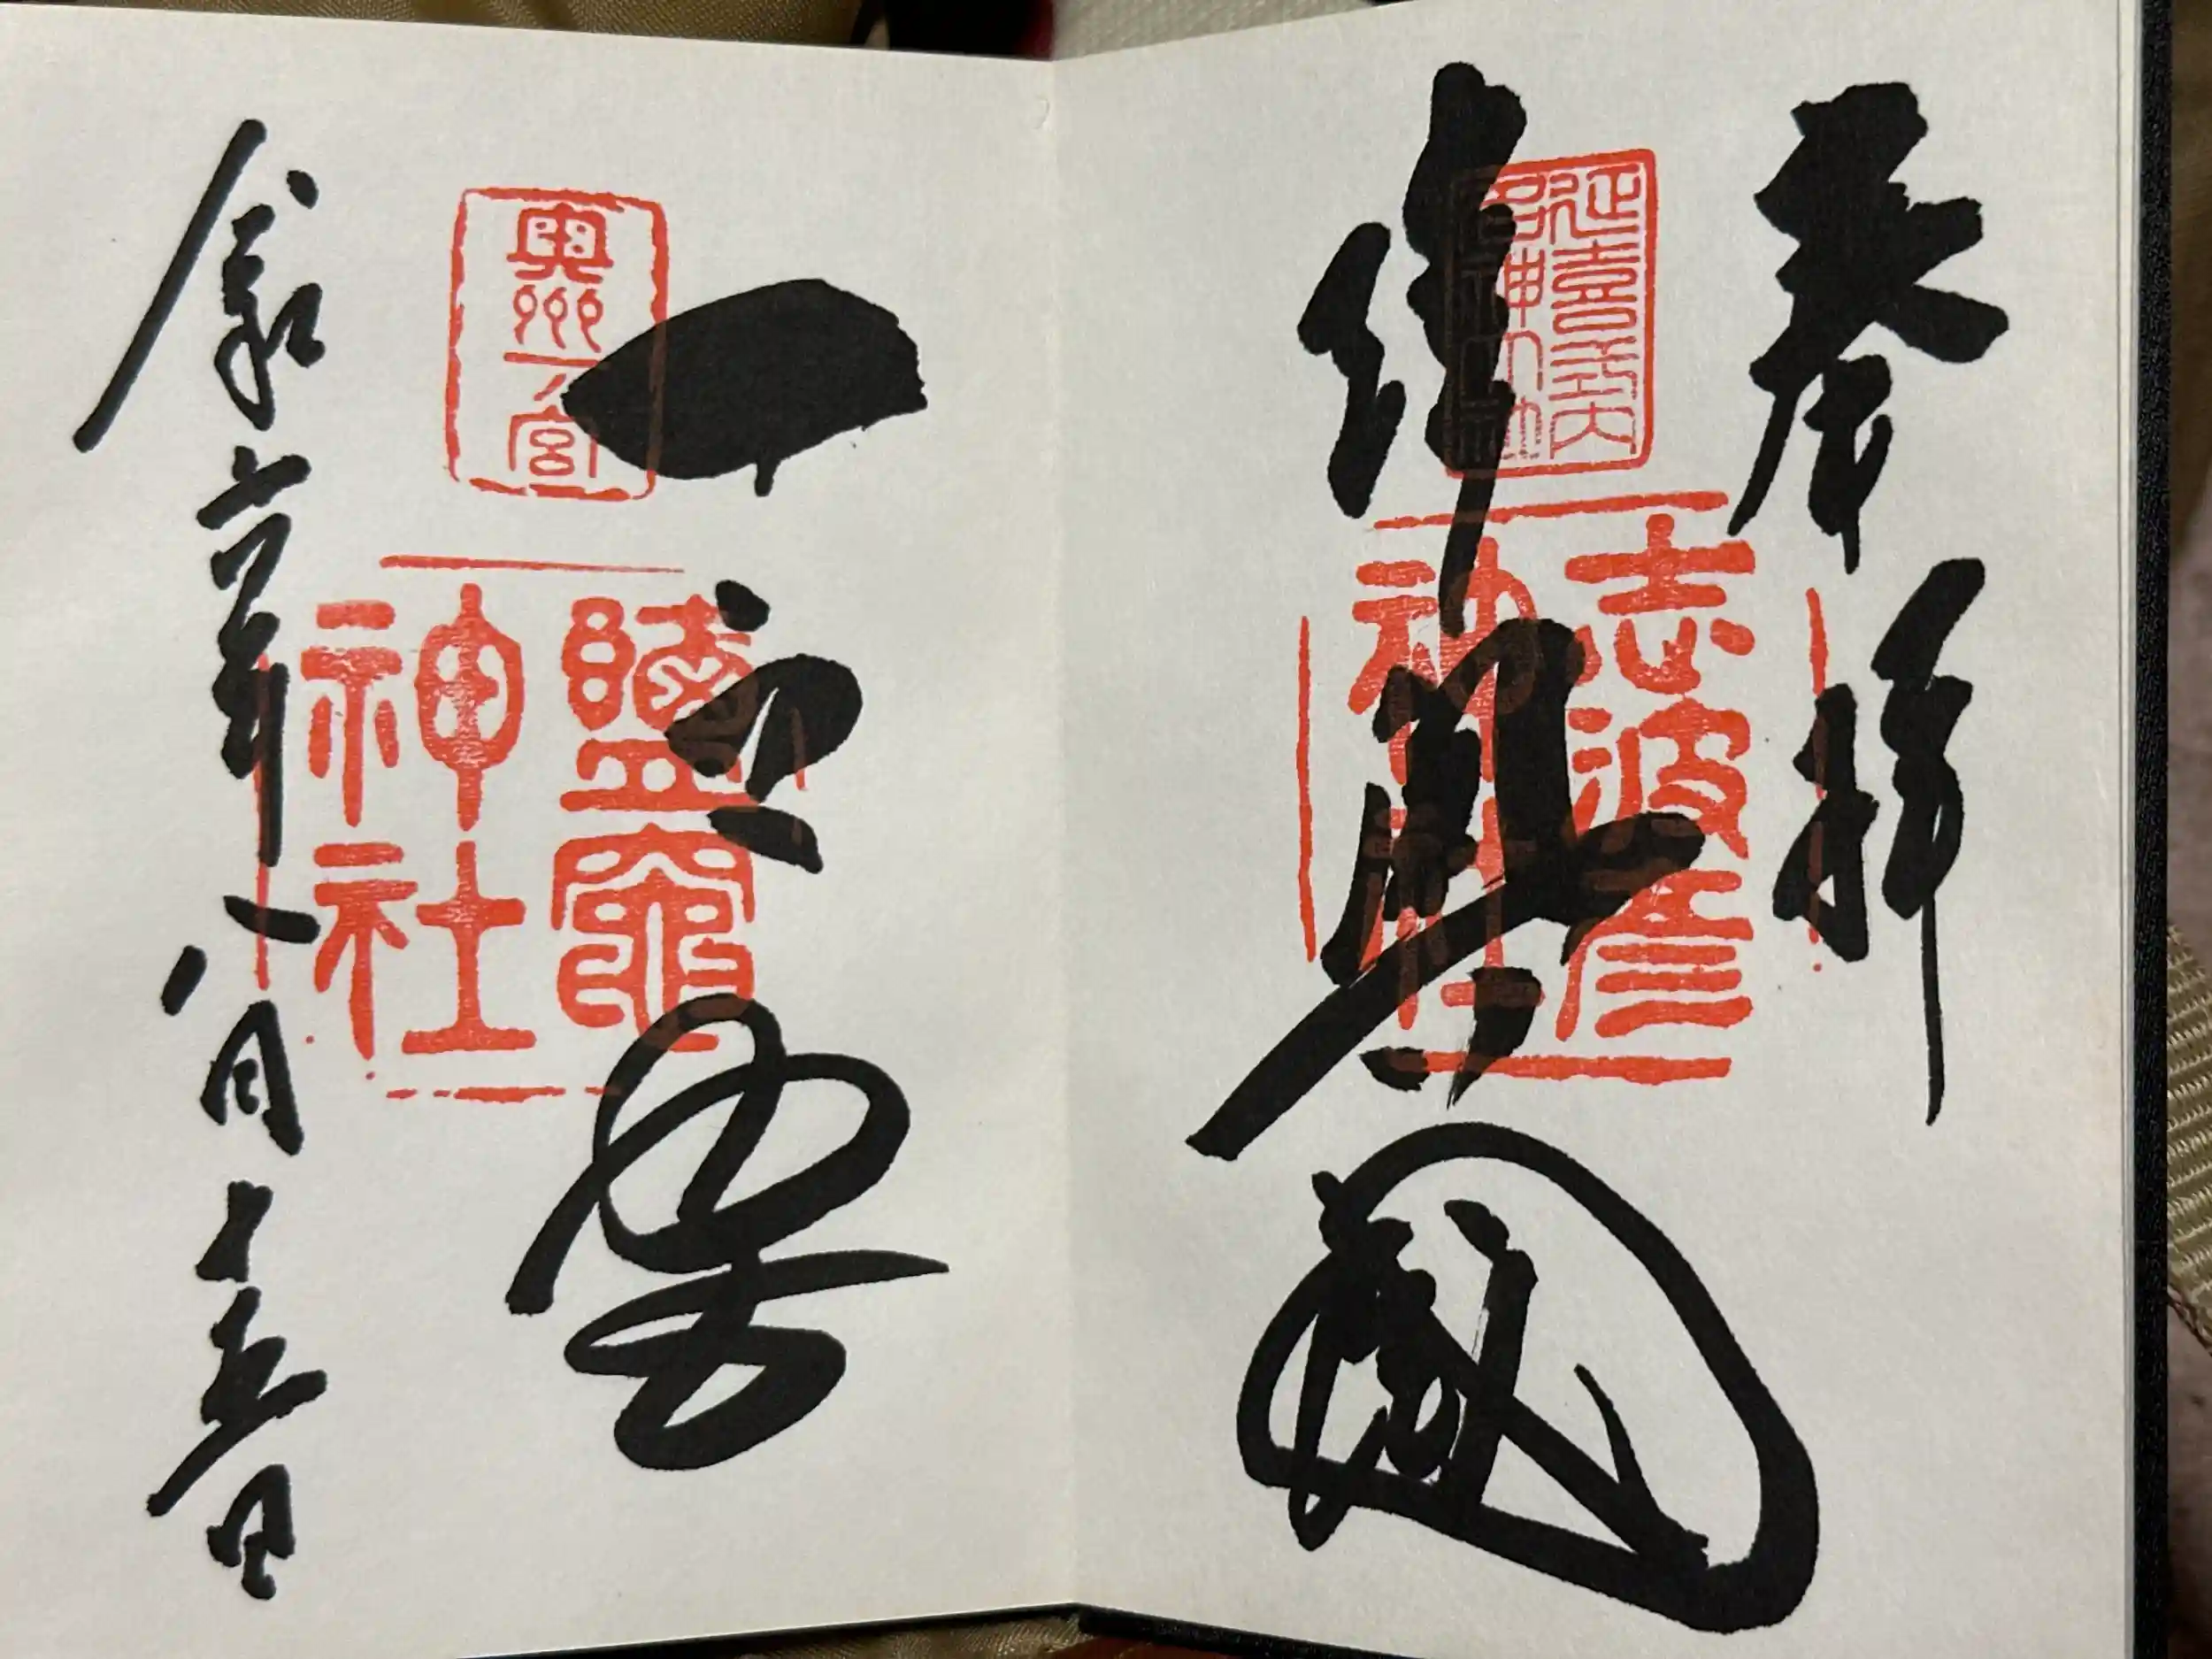 奉拝
陸奥國
延喜式内
名神大社
志波彦
神社
一之宮
奥州一ノ宮
鹽竈
神社
令和六年八月十五日